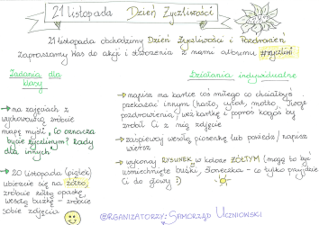 21 listopada Dzień Życzliwości
21 listopada obchodzimy Dzień Życzliwości i Pozdrowień
Zapraszamy Was do akcji i stworzenia z nami albumu #życzliwi
Zadania dla klasy
→ na zajęciach z
wychowawcą zróbcie
mapę myśli, Co oznacza
bycie życzliwym? kody
dla innych
→ 20 listopada (piątek)
ubierzcie się na żółto,
zróbcie żółty opaskę
wesołej buźkę - zróbcie
sobie zdjęcia
Działania indywidualne
→ napisz na kartce coś miłego co chciałbyś
przekazać innym (hasło, cytat, motto, Twoje
pozdrowienia), weź kartkę i poproś kogoś by
zrobił Ci z nią zdjęcie
→ zaśpiewaj wesołą piosenkę lub powiedz/napisz
wiersz
→ wykonaj RYSUNEK w kolorze ŻÓŁTYM (mogą to być
uśmiechnięte buźki, słoneczka - co tylko przyjdzie
Ci do głowy :)
@RGANIZATORZY: SAMORZĄD UCZNIOWSKI